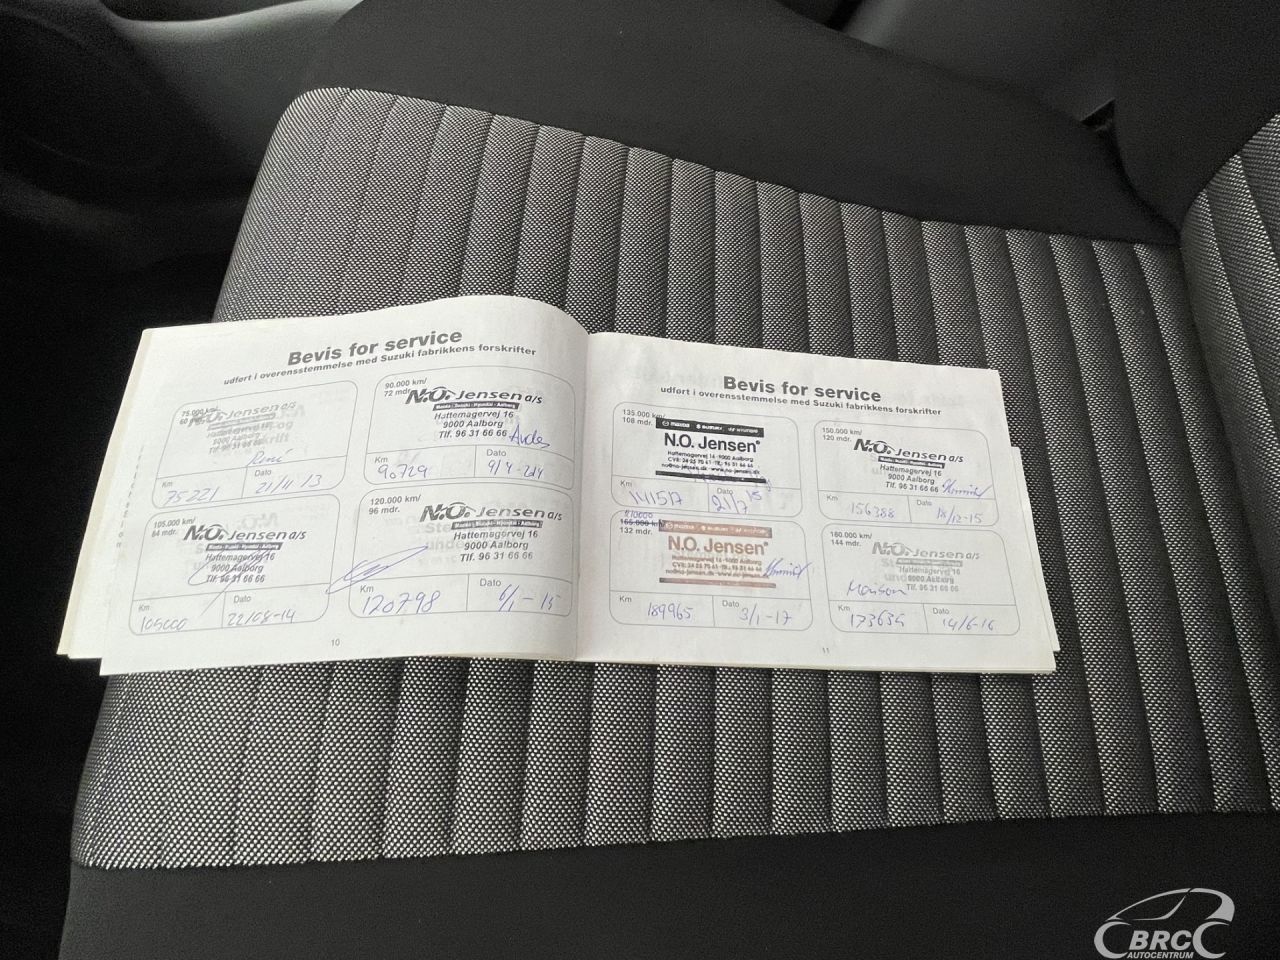 Bevis for service
udført i overensstemmelse med Suzuki fabrikkens forskrifter
75.000 km/
60
N.O. Jensen a/s
9000 Aalborg
Tlf. 96 31 66 66
René
Km
75221
Dato
21/4 13
90.000 km/
72 mdr.
N.O. Jensen a/s
Mazda - Suzuki - Hyundai - Aalborg
Hattemagervej 16
9000 Aalborg
Tlf. 96 31 66 66
Km
90729
Dato
9/4-214
105.000 km/
84 mdr.
N.O. Jensen a/s
Mazda - Suzuki - Hyundai - Aalborg
Hattemagervej 16
9000 Aalborg
Tlf. 96 31 66 66
Km
105000
Dato
22/08-14
120.000 km/
96 mdr.
N.O. Jensen a/s
Mazda - Suzuki - Hyundai - Aalborg
Hattemagervej 16
9000 Aalborg
Tlf. 96 31 66 66
Km
120798
Dato
6/1-15
10
Bevis for service
udført i overensstemmelse med Suzuki fabrikkens forskrifter
135.000 km/
108 mdr.
mazda SUZUKI HYUNDAI
N.O. Jensen
Hattemagervej 16 - 9000 Aalborg
no@no-jensen.dk - www.no-jensen.dk
Km
141517
Dato
21/7 15
150.000 km/
120 mdr.
N.O. Jensen a/s
Mazda - Suzuki - Hyundai - Aalborg
Hattemagervej 16
9000 Aalborg
Tlf. 96 31 66 66
Km
156388
Dato
18/12-15
165.000 km/
132 mdr.
mazda SUZUKI HYUNDAI
N.O. Jensen
Hattemagervej 16 - 9000 Aalborg
no@no-jensen.dk - www.no-jensen.dk
Km
189965
Dato
3/1-17
180.000 km/
144 mdr.
N.O. Jensen a/s
Hattemagervej 16
9000 Aalborg
Tlf. 96 31 66 66
Km
173634
Dato
14/6-16
11
BRC
AUTOCENTRUM